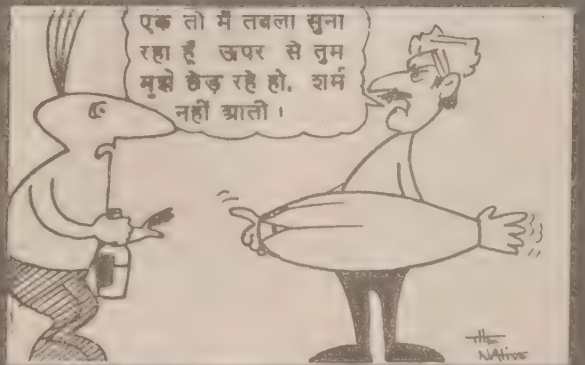 एक तो मैं तबला सुना
रहा हूँ ऊपर से तुम
मुझे छेड़ रहे हो, शर्म
नहीं आती।
THE
NATIVE